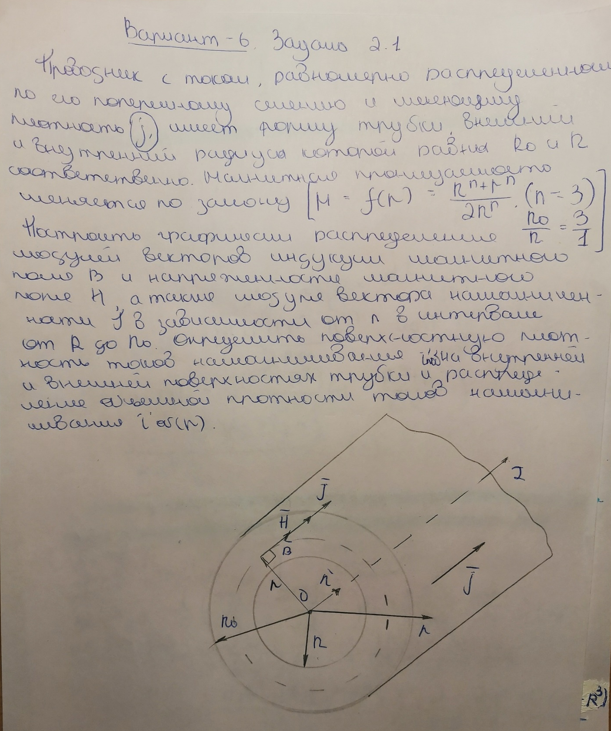 Вариант-6. Задача 2.1
Проводник с током, равномерно распределенном
по его поперечному сечению и имеющему
плотность j, имеет форму трубки, внешний
и внутренний радиусы которой равны R₀ и R
соответственно. Магнитная проницаемость
меняется по закону [μ = f(r) = (Rⁿ + rⁿ)/2Rⁿ . (n = 3) R₀/R = 3/1]
Построить графически распределения
модулей векторов индукции магнитного
поля B и напряженности магнитного
поля H, а также модуля вектора намагничен-
ности J в зависимости от r в интервале
от R до R₀. Определить поверхностную плот-
ность токов намагничивания на внутренней
и внешней поверхностях трубки и распреде-
ление объемной плотности токов намагни-
чивания i'об(r).
I
J
H
B
J
r
n
O
R₀
R
r
R³)